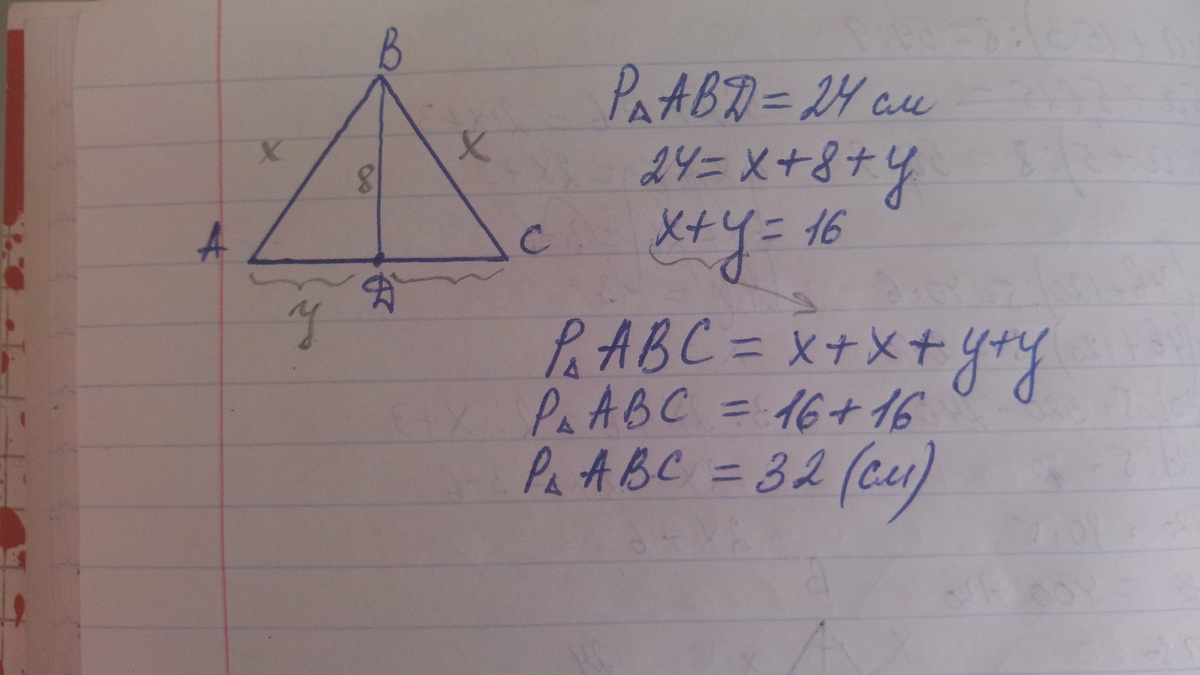 B
x
x
8
A
C
y
D
P△ABD = 24 см
24 = x + 8 + y
x + y = 16
P△ABC = x + x + y + y
P△ABC = 16 + 16
P△ABC = 32 (см)